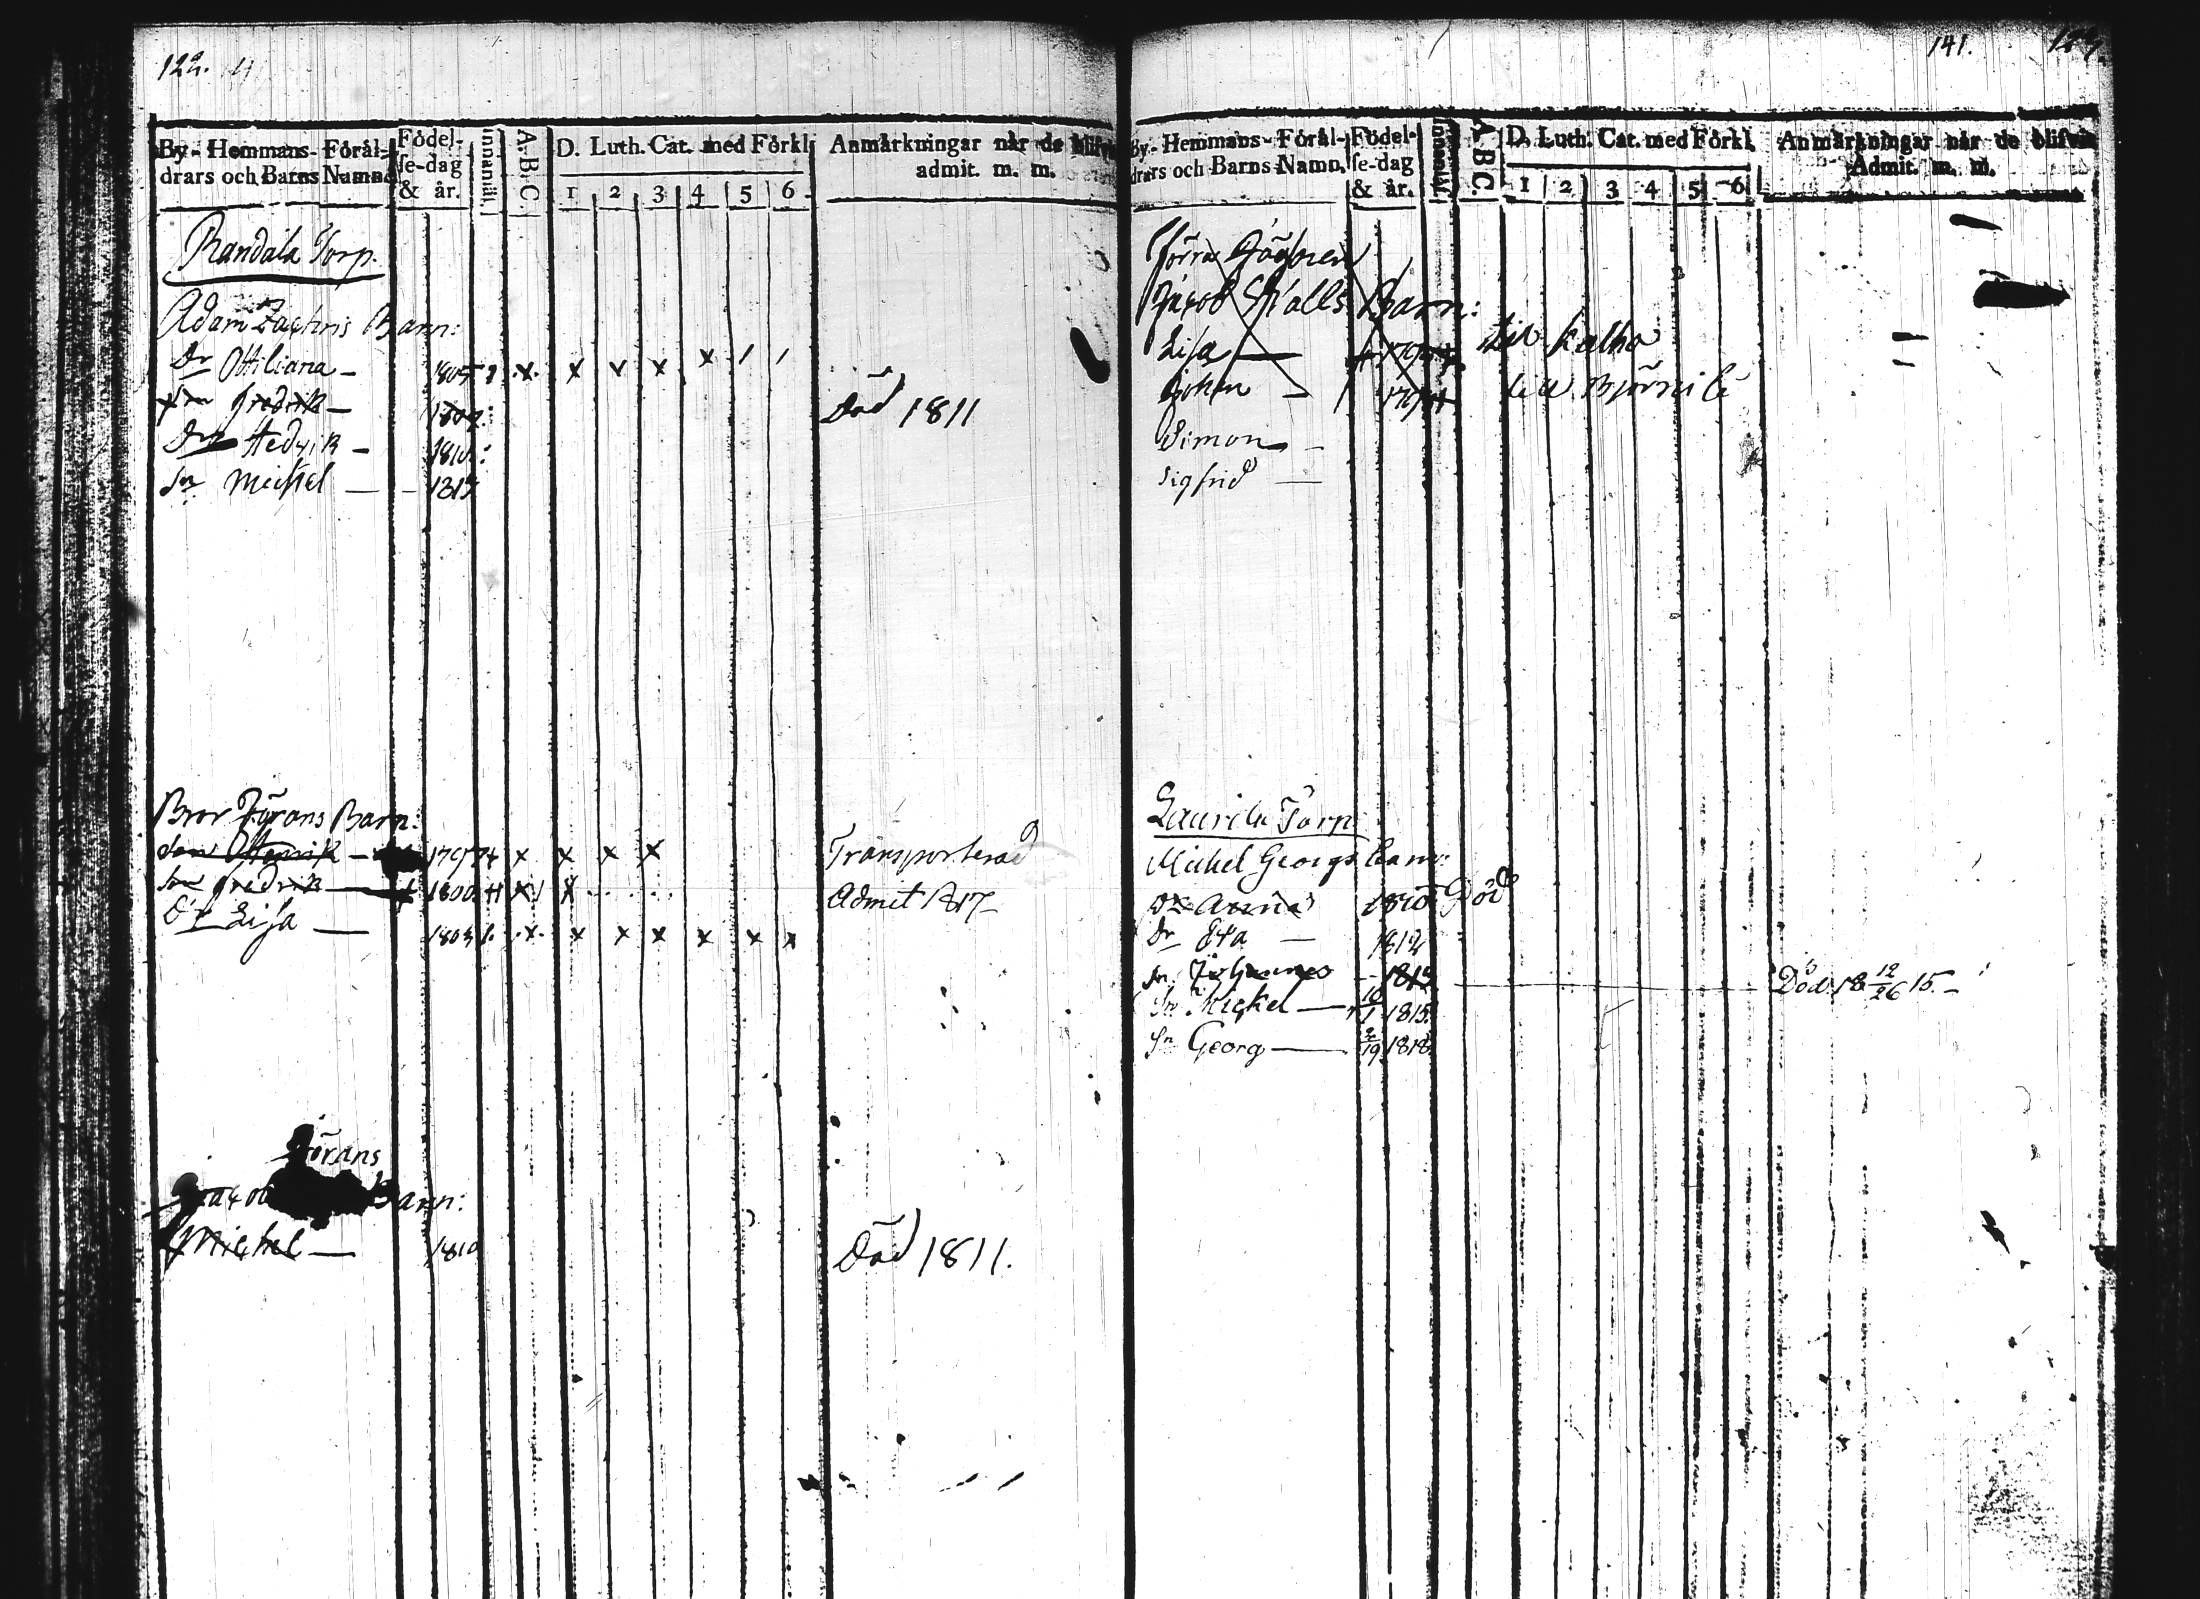 122.
By-Hemmans-Förål-
drars och Barns Namn.
Födel-
se-dag
& år.
Innantill.
A. B. C.
D. Luth. Cat. med Förkl.
1 2 3 4 5 6
Anmärkningar når de blifvit
admit. m. m.
Randala Torp.
Adam Zachris Barn:
Dr Ottiliana — 1805
Sn Fredrik — 1809. Död 1811
Dr Hedvik — 1810
Sn Michel — 1813
Bror Jörans Barn:
Son Henrik — 1797 x x x x Transporterad
Son Fredrik — 1800 Admit 1817
Dr Lisa — 1803
Jörans
Jacob Barn:
Michel — 1810 Död 1811.
141.
By-Hemmans-Förål-
drars och Barns Namn.
Födel-
se-dag
& år.
Innantill.
A. B. C.
D. Luth. Cat. med Förkl.
1 2 3 4 5 6
Anmärkningar når de blifvit
Admit. m. m.
Förra
Jacob Barn:
Lisa —
Johan — till
Simon —
Sigfrid —
Laurila Torp
Michel Georgs barn:
Dr Anna 1810 Död
Dr Eva — 1812
Sn Johannes — 1813 Död 18 12/26 15. —
Sn Mickel — 10/1 1815.
Sn Georg — 2/19 1818.